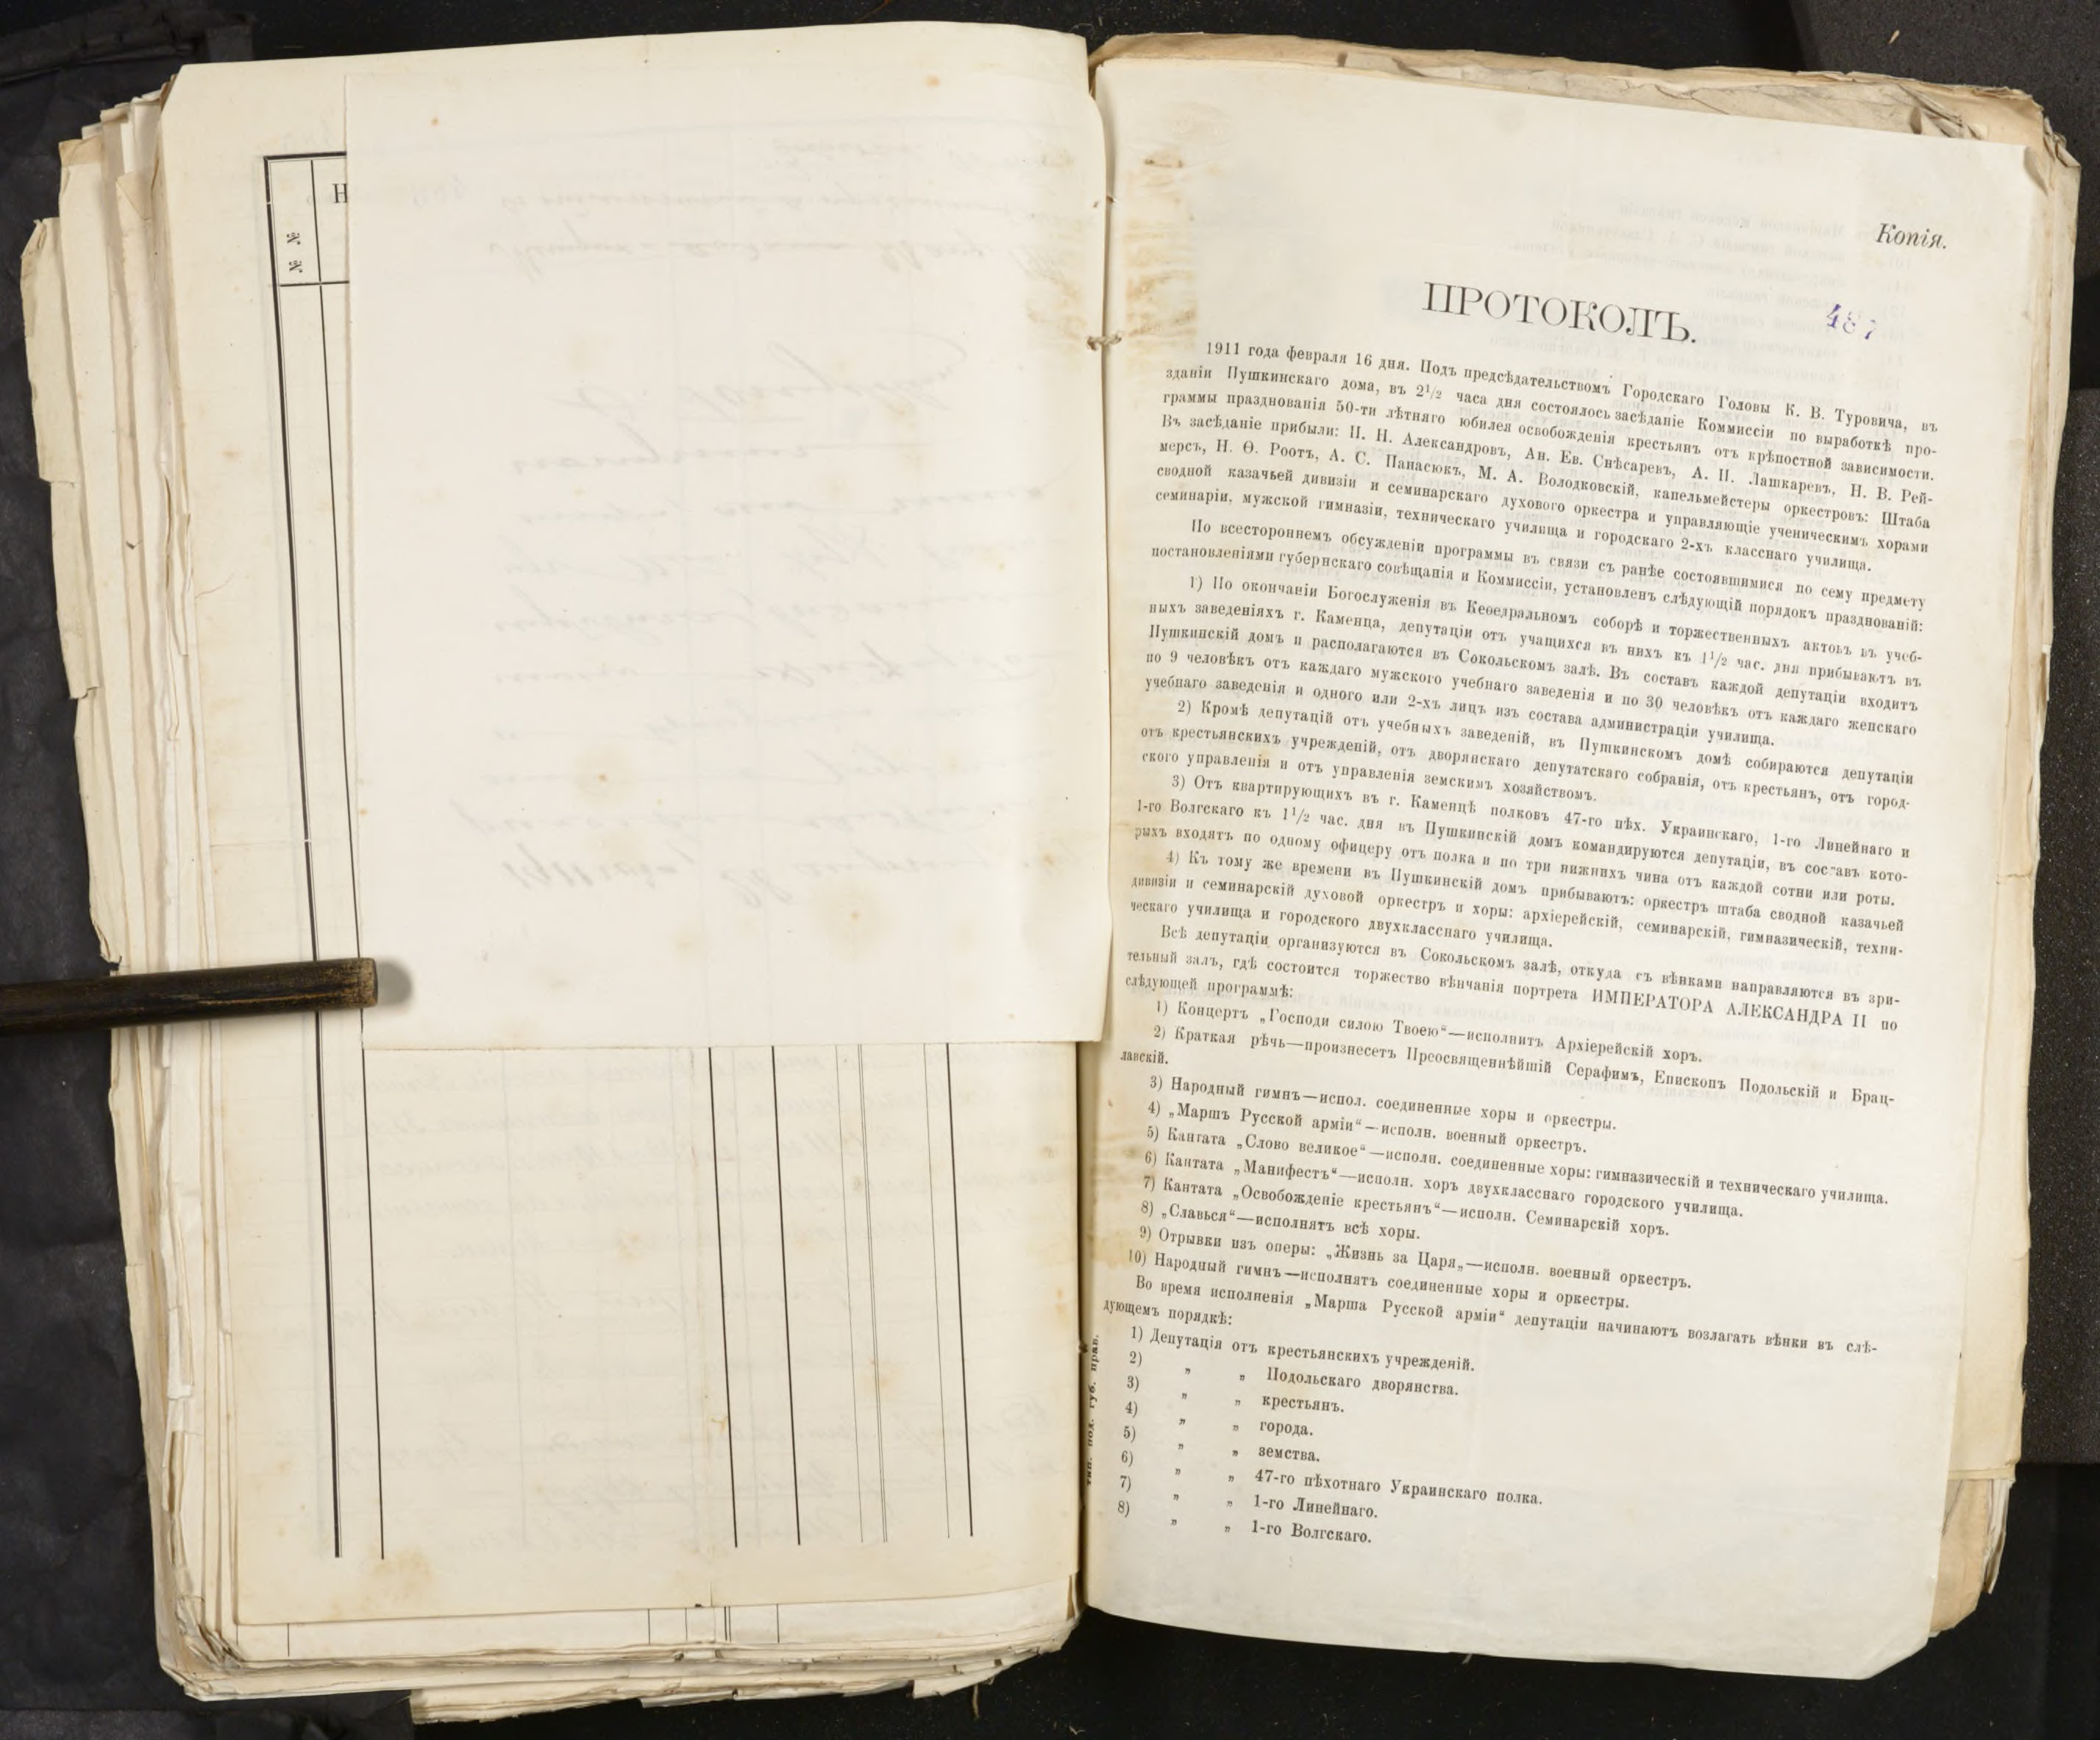 № №
Н
Копія.
ПРОТОКОЛЪ.
487
1911 года февраля 16 дня. Подъ предсѣдательствомъ Городскаго Головы К. В. Туровича, въ
зданіи Пушкинскаго дома, въ 2½ часа дня состоялось засѣданіе Коммиссіи по выработкѣ про-
граммы празднованія 50-ти лѣтняго юбилея освобожденія крестьянъ отъ крѣпостной зависимости.
Въ засѣданіе прибыли: П. Н. Александровъ, Ан. Ев. Снѣсаревъ, А. П. Лашкаревъ, Н. В. Рей-
мерсъ, Н. Ѳ. Роотъ, А. С. Панасюкъ, М. А. Володковскій, капельмейстеры оркестровъ: Штаба
сводной казачьей дивизіи и семинарскаго духового оркестра и управляющіе ученическимъ хорами
семинаріи, мужской гимназіи, техническаго училища и городскаго 2-хъ класснаго училища.
По всестороннемъ обсужденіи программы въ связи съ ранѣе состоявшимися по сему предмету
постановленіями губернскаго совѣщанія и Коммиссіи, установленъ слѣдующій порядокъ празднованій:
1) По окончаніи Богослуженія въ Кеѳедральномъ соборѣ и торжественныхъ актовъ въ учеб-
ныхъ заведеніяхъ г. Каменца, депутаціи отъ учащихся въ нихъ къ 1½ час. дня прибываютъ въ
Пушкинскій домъ и располагаются въ Сокольскомъ залѣ. Въ составъ каждой депутаціи входитъ
по 9 человѣкъ отъ каждаго мужского учебнаго заведенія и по 30 человѣкъ отъ каждаго женскаго
учебнаго заведенія и одного или 2-хъ лицъ изъ состава администраціи училища.
2) Кромѣ депутацій отъ учебныхъ заведеній, въ Пушкинскомъ домѣ собираются депутаціи
отъ крестьянскихъ учрежденій, отъ дворянскаго депутатскаго собранія, отъ крестьянъ, отъ город-
ского управленія и отъ управленія земскимъ хозяйствомъ.
3) Отъ квартирующихъ въ г. Каменцѣ полковъ 47-го пѣх. Украинскаго, 1-го Линейнаго и
1-го Волгскаго къ 1½ час. дня въ Пушкинскій домъ командируются депутаціи, въ составъ кото-
рыхъ входятъ по одному офицеру отъ полка и по три нижнихъ чина отъ каждой сотни или роты.
4) Къ тому же времени въ Пушкинскій домъ прибываютъ: оркестръ штаба сводной казачьей
дивизіи и семинарскій духовой оркестръ и хоры: архіерейскій, семинарскій, гимназическій, техни-
ческаго училища и городского двухкласснаго училища.
Всѣ депутаціи организуются въ Сокольскомъ залѣ, откуда съ вѣнками направляются въ зри-
тельный залъ, гдѣ состоится торжество вѣнчанія портрета ИМПЕРАТОРА АЛЕКСАНДРА II по
слѣдующей программѣ:
1) Концертъ „Господи силою Твоею“—исполнитъ Архіерейскій хоръ.
2) Краткая рѣчь—произнесетъ Преосвященнѣйшій Серафимъ, Епископъ Подольскій и Брац-
лавскій.
3) Народный гимнъ—испол. соединенные хоры и оркестры.
4) „Маршъ Русской арміи“—исполн. военный оркестръ.
5) Кантата „Слово великое“—исполн. соединенные хоры: гимназическій и техническаго училища.
6) Кантата „Манифестъ“—исполн. хоръ двухкласснаго городского училища.
7) Кантата „Освобожденіе крестьянъ“—исполн. Семинарскій хоръ.
8) „Славься“—исполнятъ всѣ хоры.
9) Отрывки изъ оперы: „Жизнь за Царя„—исполн. военный оркестръ.
10) Народный гимнъ—исполнятъ соединенные хоры и оркестры.
Во время исполненія „Марша Русской арміи“ депутаціи начинаютъ возлагать вѣнки въ слѣ-
дующемъ порядкѣ:
1) Депутація отъ крестьянскихъ учрежденій.
2) „ „ Подольскаго дворянства.
3) „ „ крестьянъ.
4) „ „ города.
5) „ „ земства.
6) „ „ 47-го пѣхотнаго Украинскаго полка.
7) „ „ 1-го Линейнаго.
8) „ „ 1-го Волгскаго.
тип. под. губ. прав.